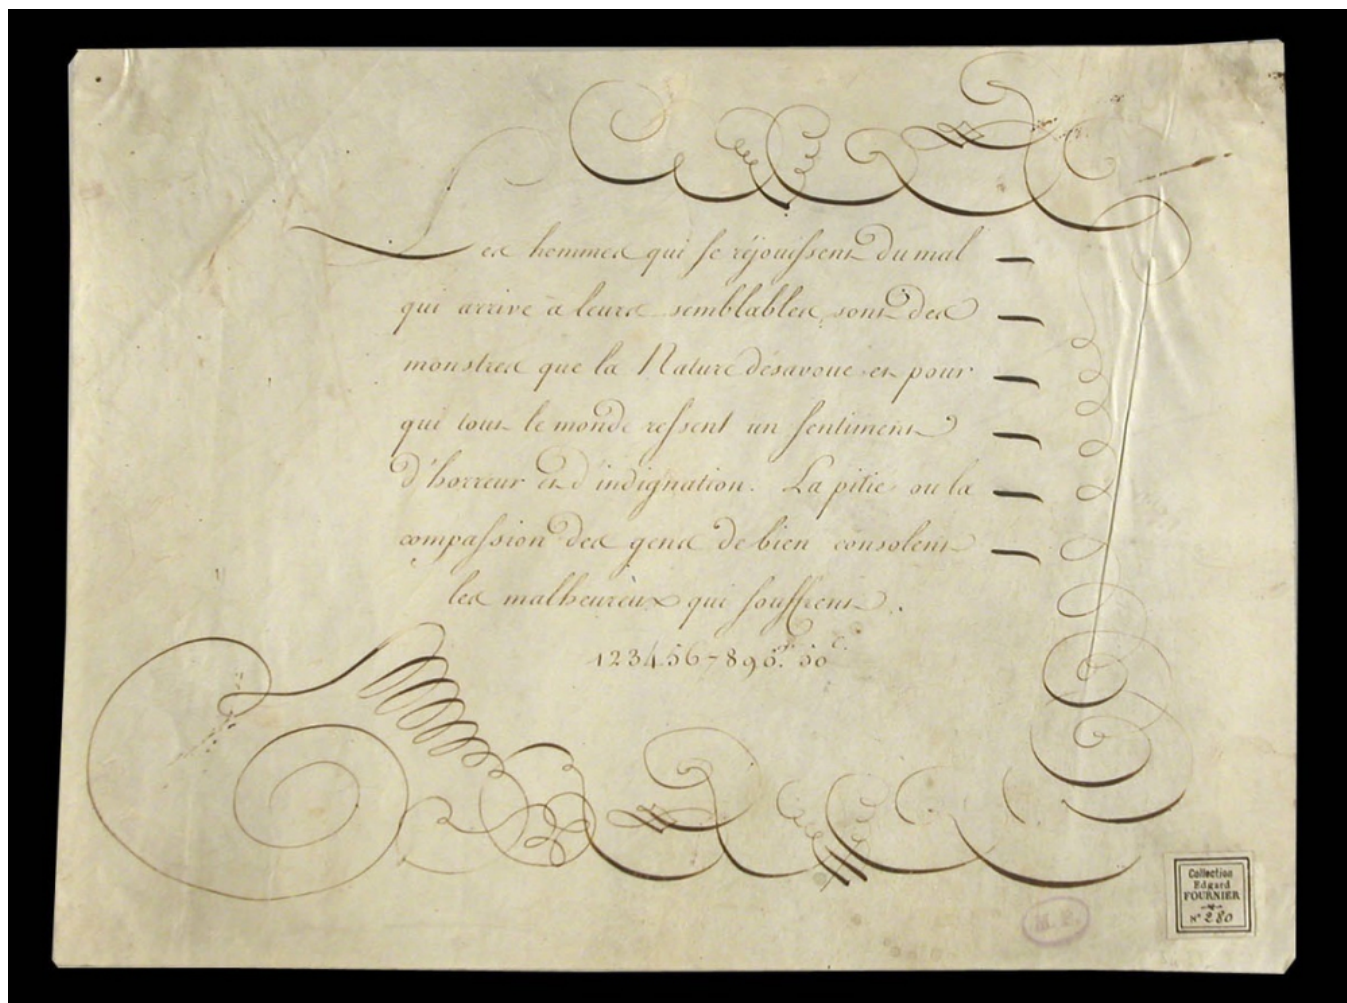 Les hommes qui se réjouissent du mal
qui arrive à leurs semblables, sont des
monstres que la Nature désavoue et pour
qui tout le monde ressent un sentiment
d'horreur et d'indignation. La pitié ou la
compassion des gens de bien consolent
les malheureux qui souffrent.
1234567890
Collection
Edgard
FOURNIER
N° 280